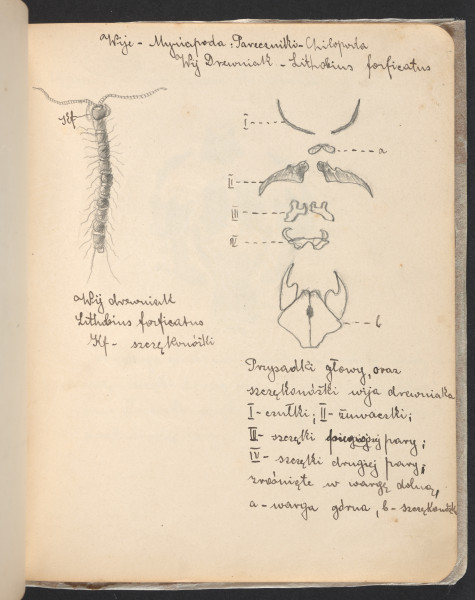 Wije - Myriapoda: Pareczniki - Chilopoda
Wij Drewniak - Lithobius forficatus
Kf
I
a
II
III
IV
b
Wij drewniak
Lithobius forficatus
Kf - szczękonóżki
Przysadki głowy, oraz
szczękonóżki wija drewniaka
I - czułki; II - żuwaczki;
III - szczęki pary;
IV - szczęki drugiej pary;
zrośnięte w wargę dolną,
a - warga górna, b - szczękonóżki